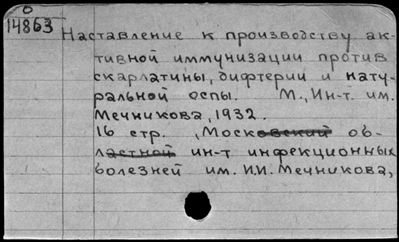 О
14863
Наставление к производству ак-
тивной иммунизации против
скарлатины, дифтерии и нату-
ральной оспы. М., Ин-т. им.
Мечникова, 1932.
16 стр. , Московский об-
ластной ин-т инфекционных
болезней им. И.И. Мечникова,